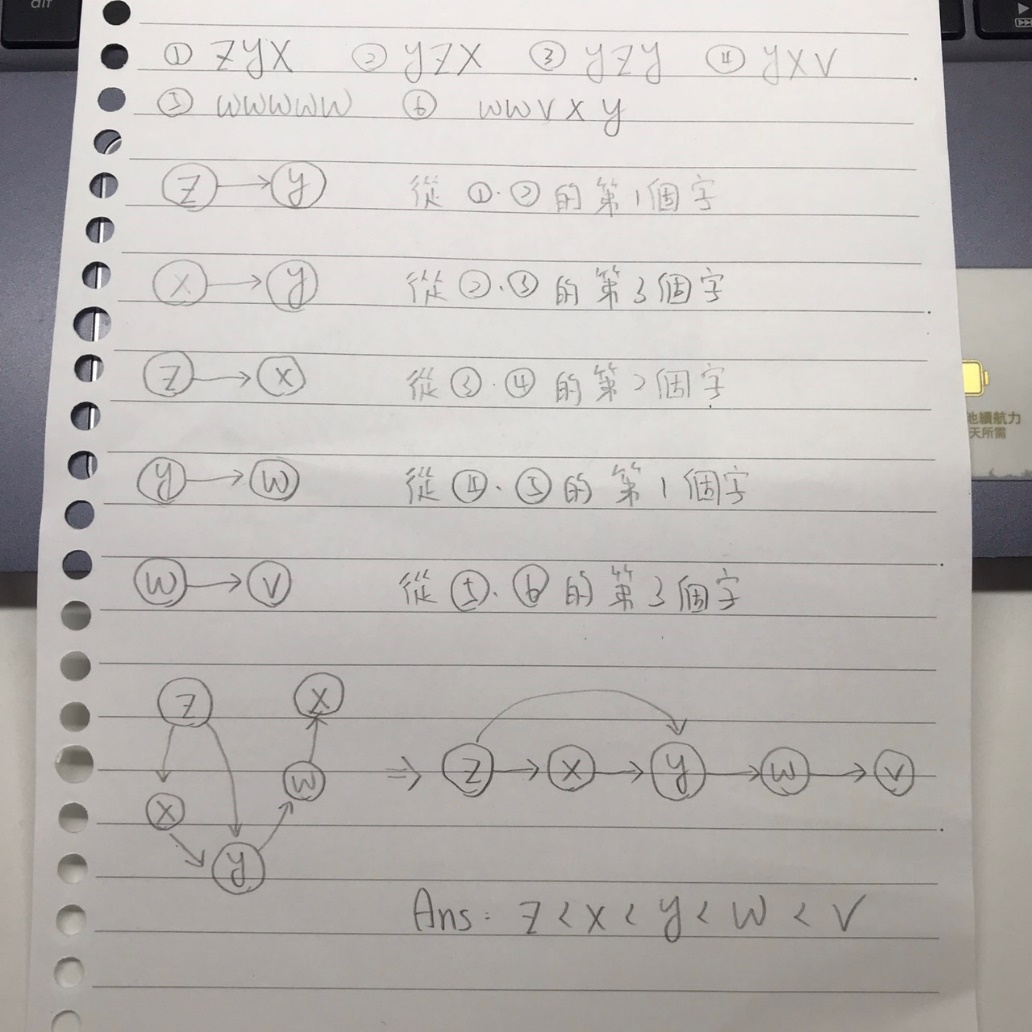 alt
① ZYX ② YZX ③ YZY ④ YXV
⑤ WWWWW ⑥ WWVXY
Z → Y 從①.②的第1個字
X → Y 從②.③的第3個字
Z → X 從③.④的第2個字
池續航力
天所需
Y → W 從④.⑤的第1個字
W → V 從⑤.⑥的第3個字
Z X
Z → X → Y → W → V
W
X
Y
Ans: Z < X < Y < W < V